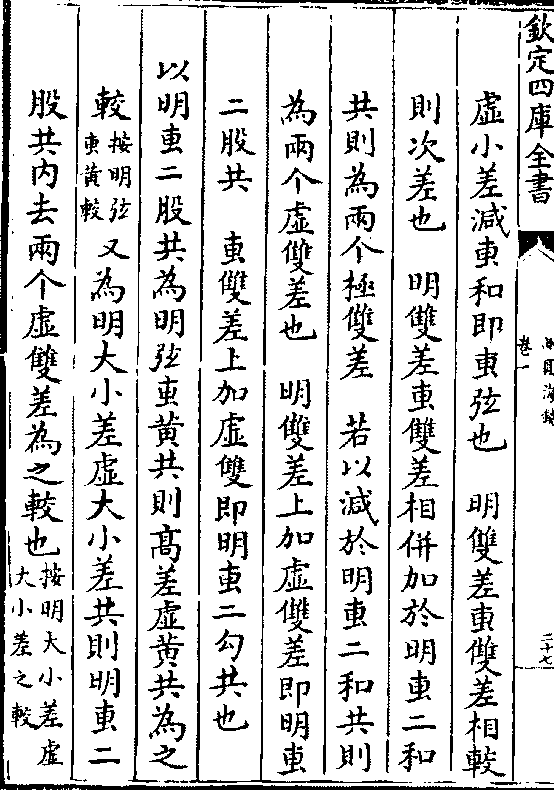 欽定四庫全書
卷一
二十七
虛小差減叀和即叀弦也　明雙差叀雙差相較
則次差也　明雙差叀雙差相併加於明叀二和
共則為兩个極雙差　若以減於明叀二和共則
為兩个虛雙差也　明雙差上加虛雙差即明叀
二股共　叀雙差上加虛雙即明叀二勾共也
以明叀二股共為明弦叀黃共則髙差虛黃共為之
較按明弦叀黃較又為明大小差虛大小差共則明叀二
股共内去兩个虛雙差為之較也按明大小差虛大小差之較